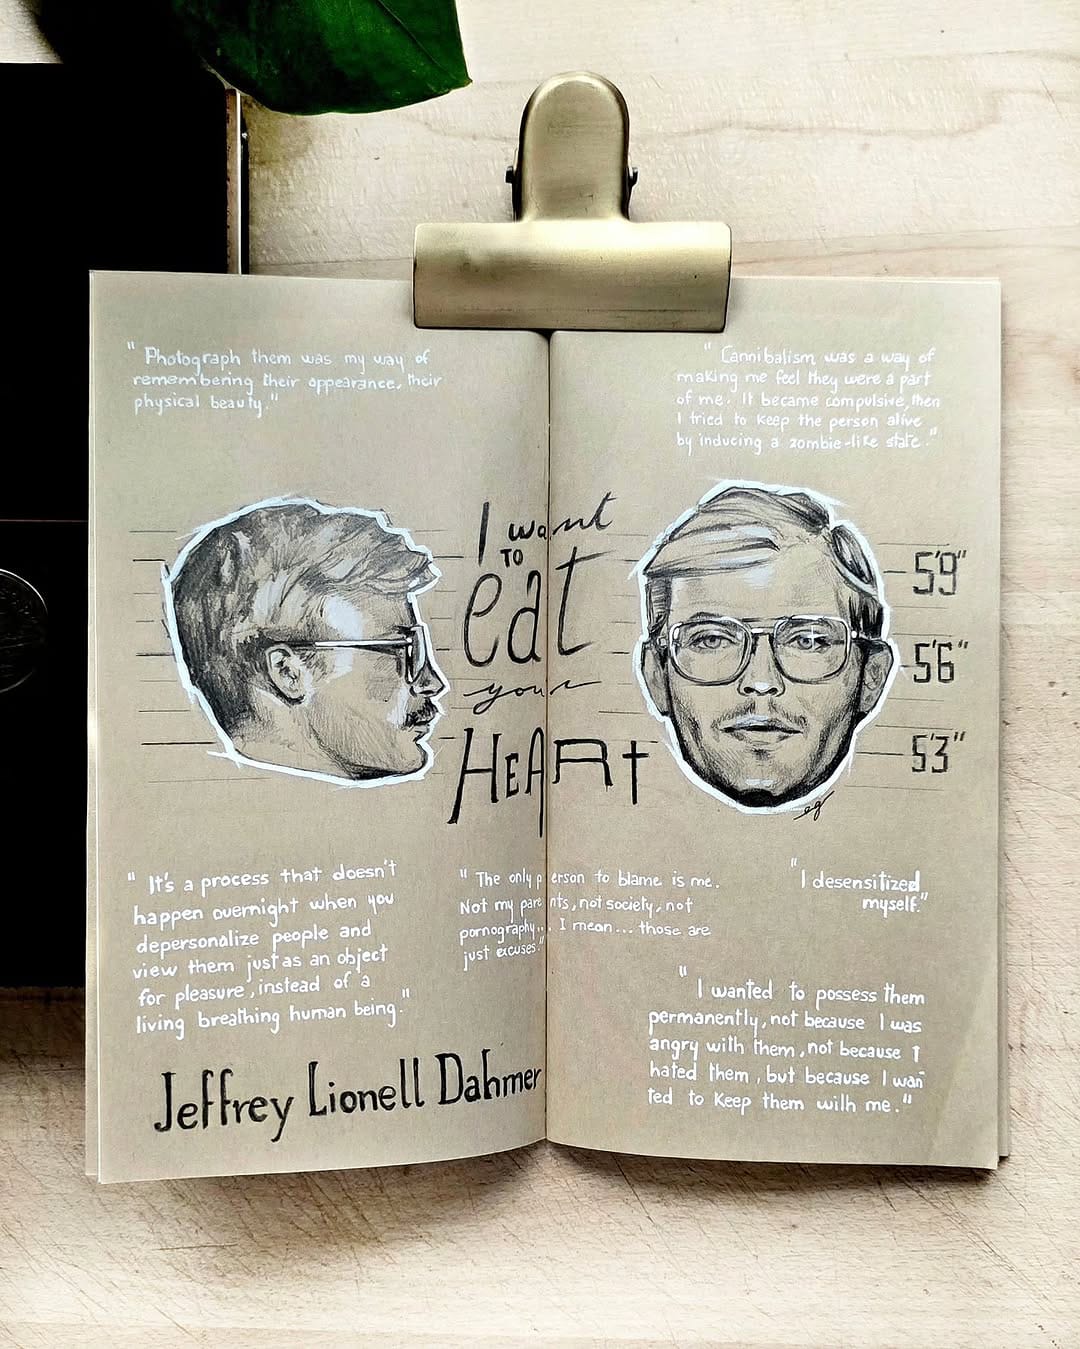 " Photograph them was my way of
remembering their appearance, their
physical beauty."
" Cannibalism was a way of
making me feel they were a part
of me. It became compulsive, then
I tried to keep the person alive
by inducing a zombie-like state."
I want
TO
eat
your
HEARt
5'9"
5'6"
5'3"
eg
" It's a process that doesn't
happen overnight when you
depersonalize people and
view them just as an object
for pleasure, instead of a
living breathing human being."
" The only person to blame is me.
Not my parents, not society, not
pornography... I mean... those are
just excuses."
"I desensitized
myself."
" I wanted to possess them
permanently, not because I was
angry with them, not because I
hated them, but because I wan
ted to keep them with me."
Jeffrey Lionell Dahmer